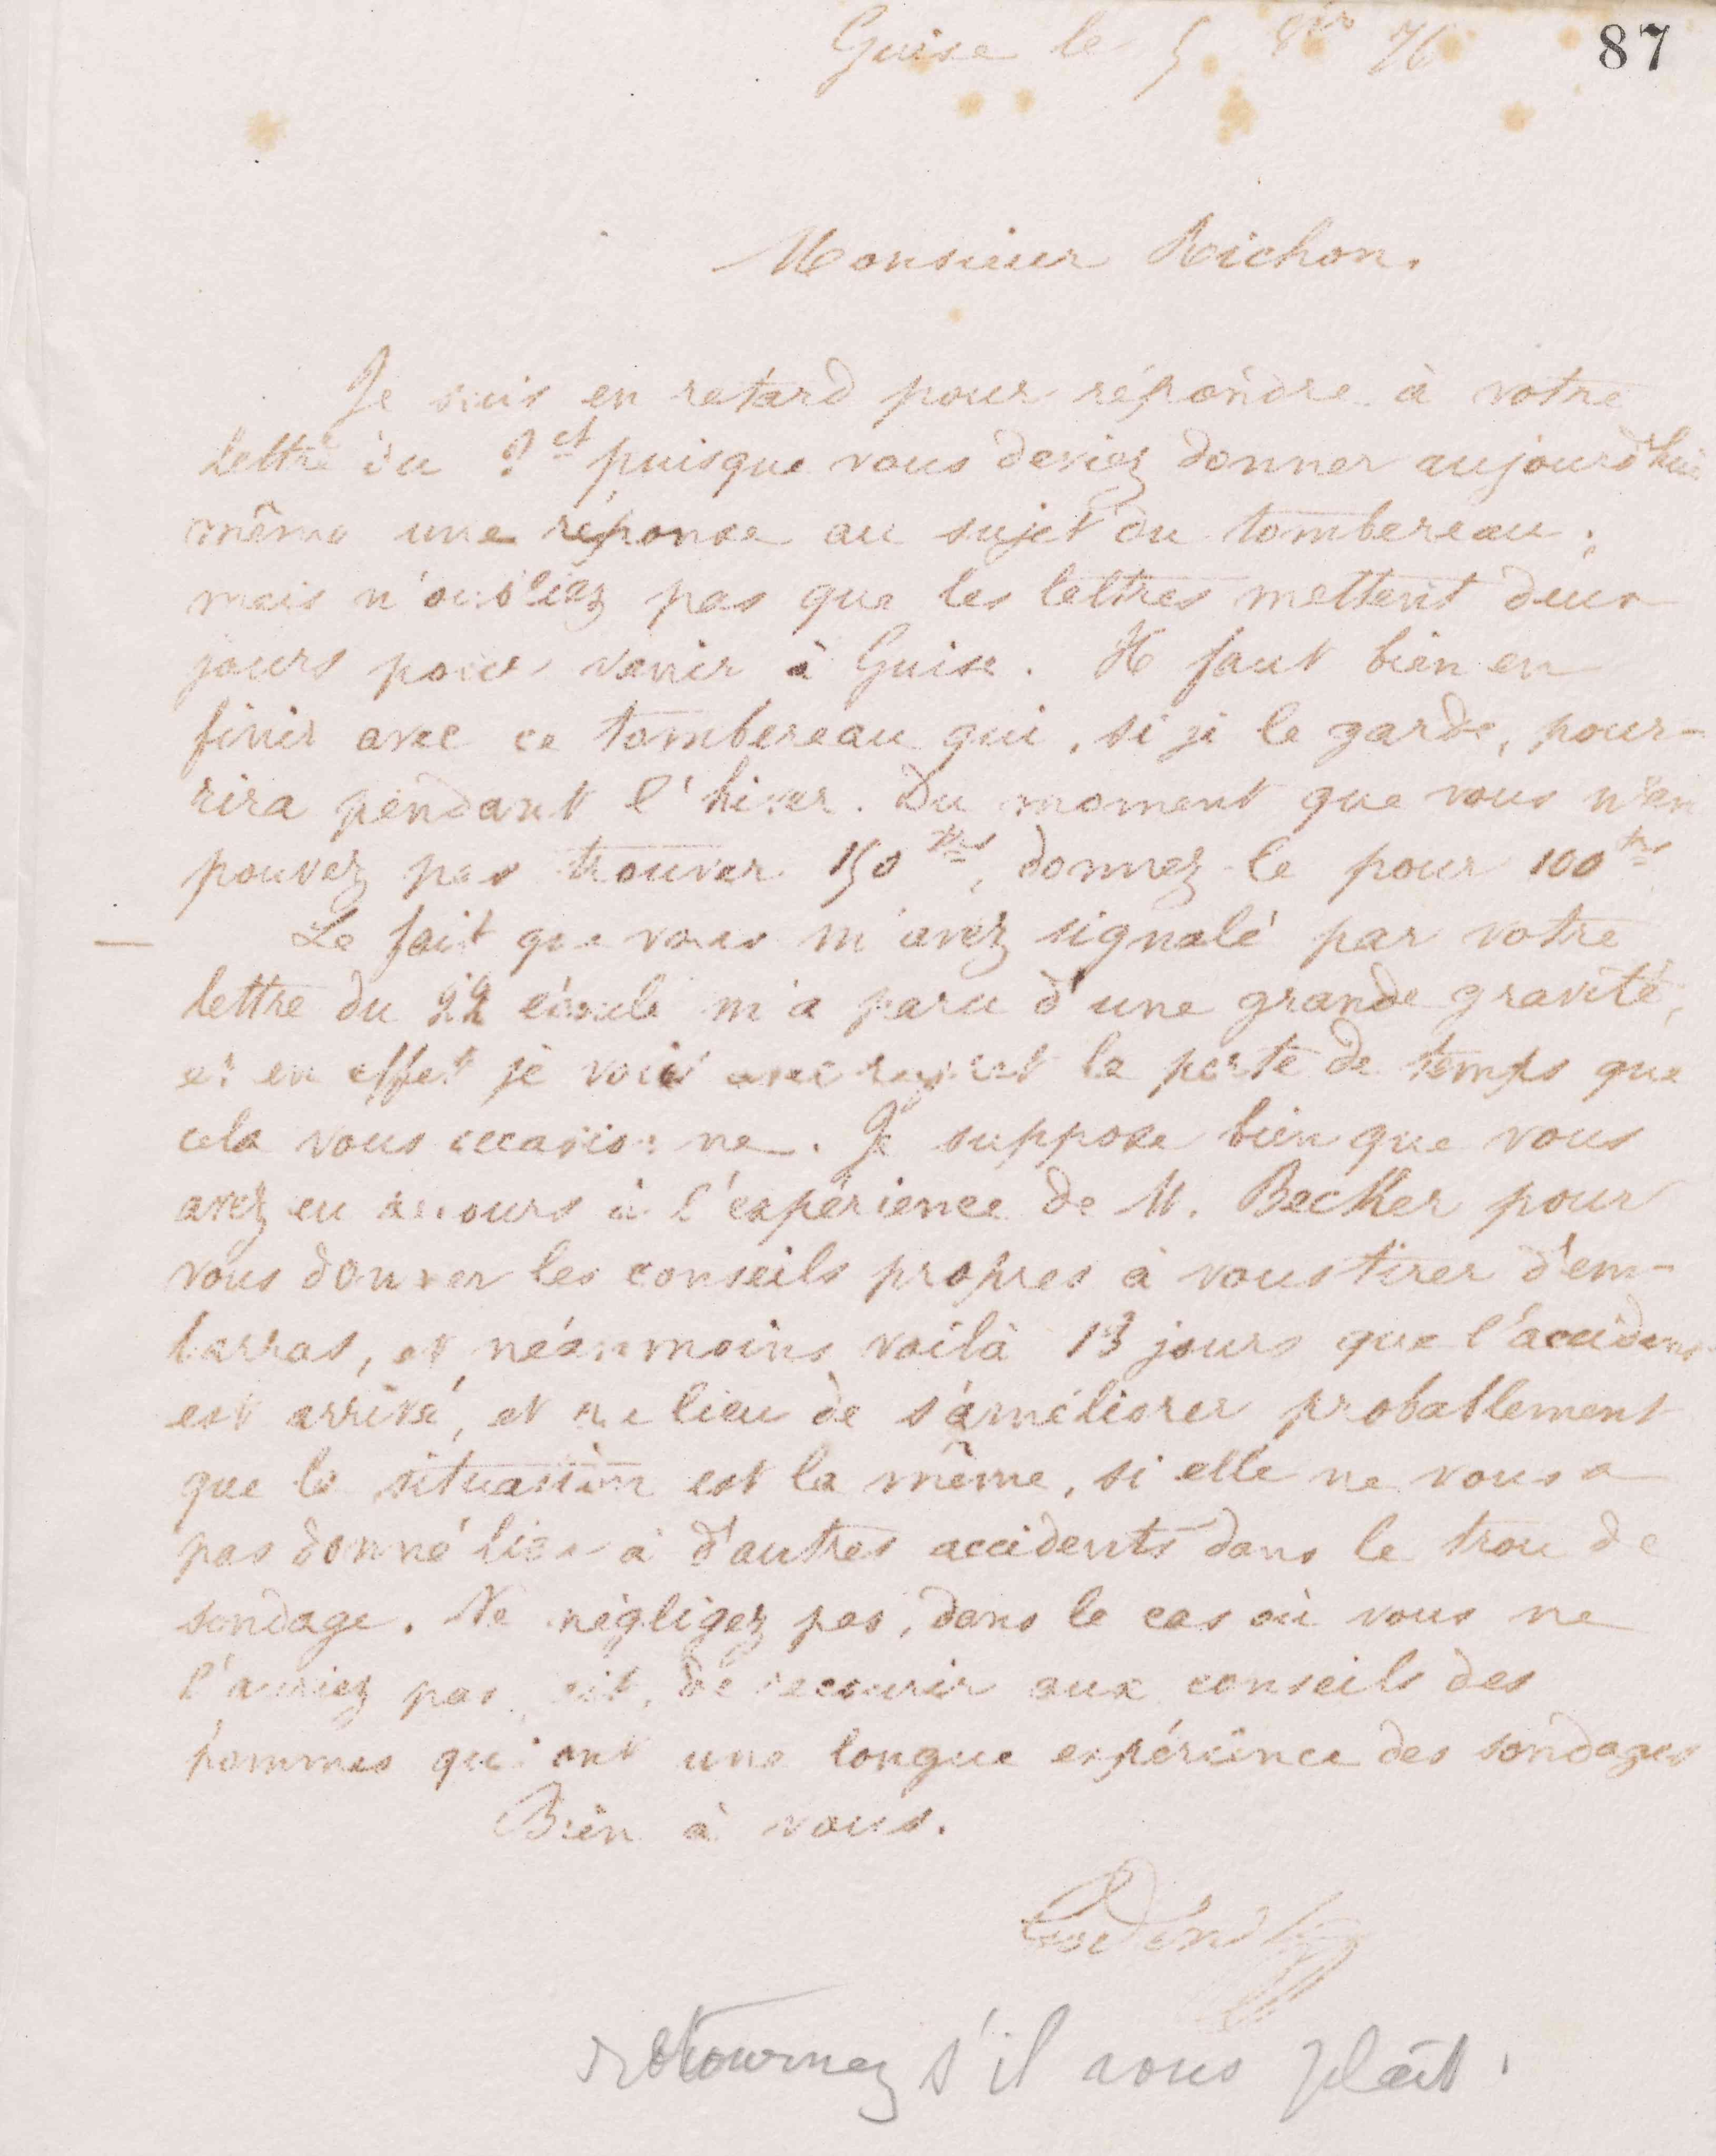 Guise le 5 8bre 76
87
Monsieur Richon.
Je suis en retard pour répondre à votre
lettre du 2 ct puisque vous deviez donner aujourd'hui
même une réponse au sujet du tombereau;
mais n'oubliez pas que les lettres mettent deux
jours pour venir à Guise. Il faut bien en
finir avec ce tombereau qui, si je le garde, pour-
rira pendant l'hiver. Du moment que vous n'en
pouvez pas trouver 150 frs, donnez-le pour 100 frs
Le fait que vous m'avez signalé par votre
lettre du 22 écoulé m'a paru d'une grande gravité,
et en effet je vois avec regret la perte de temps que
cela vous occasionne. Je suppose bien que vous
avez eu recours à l'expérience de M. Becker pour
vous donner les conseils propres à vous tirer d'em-
barras, et néanmoins voilà 13 jours que l'accident
est arrivé, et au lieu de s'améliorer probablement
que la situation est la même, si elle ne vous a
pas donné lieu à d'autres accidents dans le trou de
sondage. Ne négligez pas, dans le cas où vous ne
l'auriez pas fait, de recourir aux conseils des
hommes qui ont une longue expérience des sondages
Bien à vous.
Godin
retournez s'il vous plait.